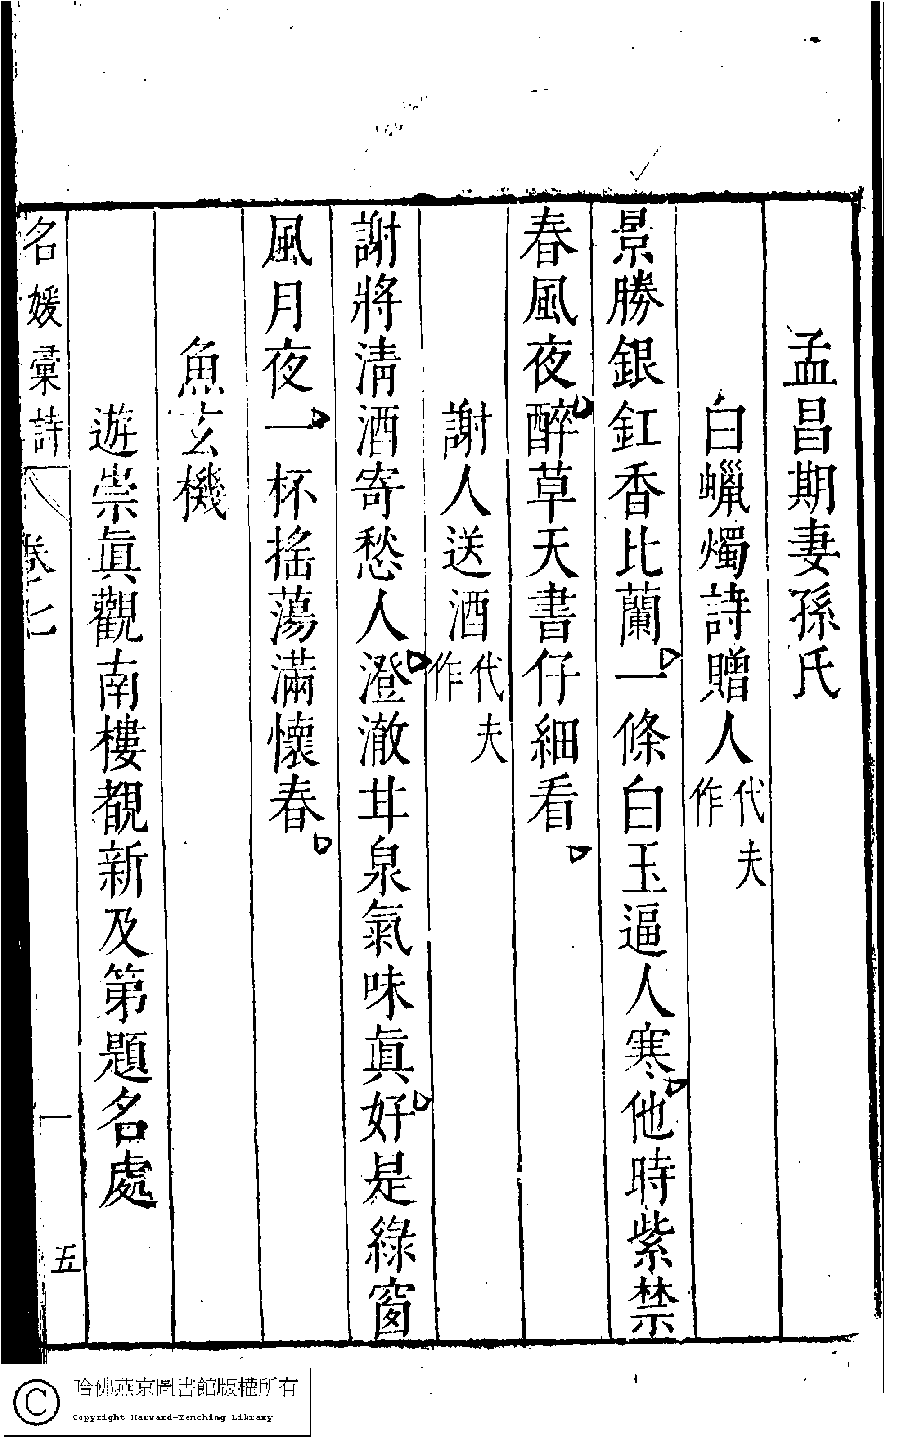 孟昌期妻孫氏
白蠟燭詩贈人代夫作
景勝銀釭香比蘭一條白玉逼人寒他時紫禁
春風夜醉草天書仔細看
謝人送酒代夫作
謝將清酒寄愁人澄澈甘泉氣味眞好是綠窗
風月夜一杯搖蕩滿懷春
魚玄機
遊崇眞觀南樓覩新及第題名處
名媛彙詩 卷七 五
哈佛燕京圖書館版權所有
Copyright Harvard-Yenching Library